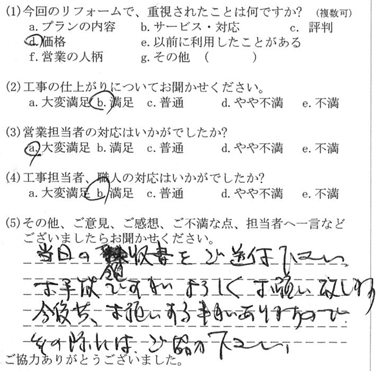 (1)今回のリフォームで、重視されたことは何ですか? (複数可)
a.プランの内容 b.サービス・対応 c. 評判
d.価格 e.以前に利用したことがある
f.営業の人柄 g.その他 ( )
(2)工事の仕上がりについてお聞かせください。
a.大変満足 b.満足 c.普通 d.やや不満 e.不満
(3)営業担当者の対応はいかがでしたか?
a.大変満足 b.満足 c.普通 d.やや不満 e.不満
(4)工事担当者、職人の対応はいかがでしたか?
a.大変満足 b.満足 c.普通 d.やや不満 e.不満
(5)その他、ご意見、ご感想、ご不満な点、担当者へ一言など
ございましたらお聞かせください。
当日の領収書をご送付下さい、
お手数ですがよろしくお願い致します
今後共、お願いする事もありますので
その際にはご協力下さい、
ご協力ありがとうございました。